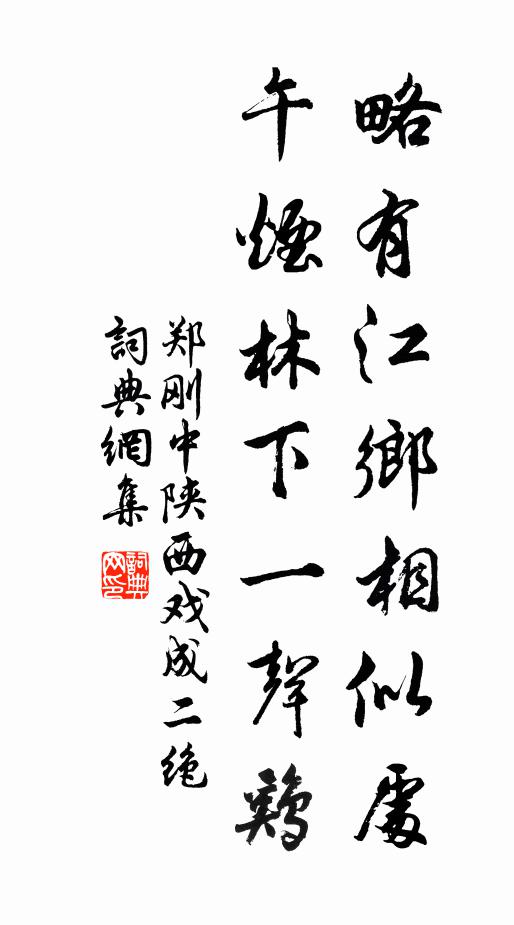 略有江鄉相似處
午煙林下一聲鷄
郑刚中陕西戏成二绝
詞典網集
詞典網印